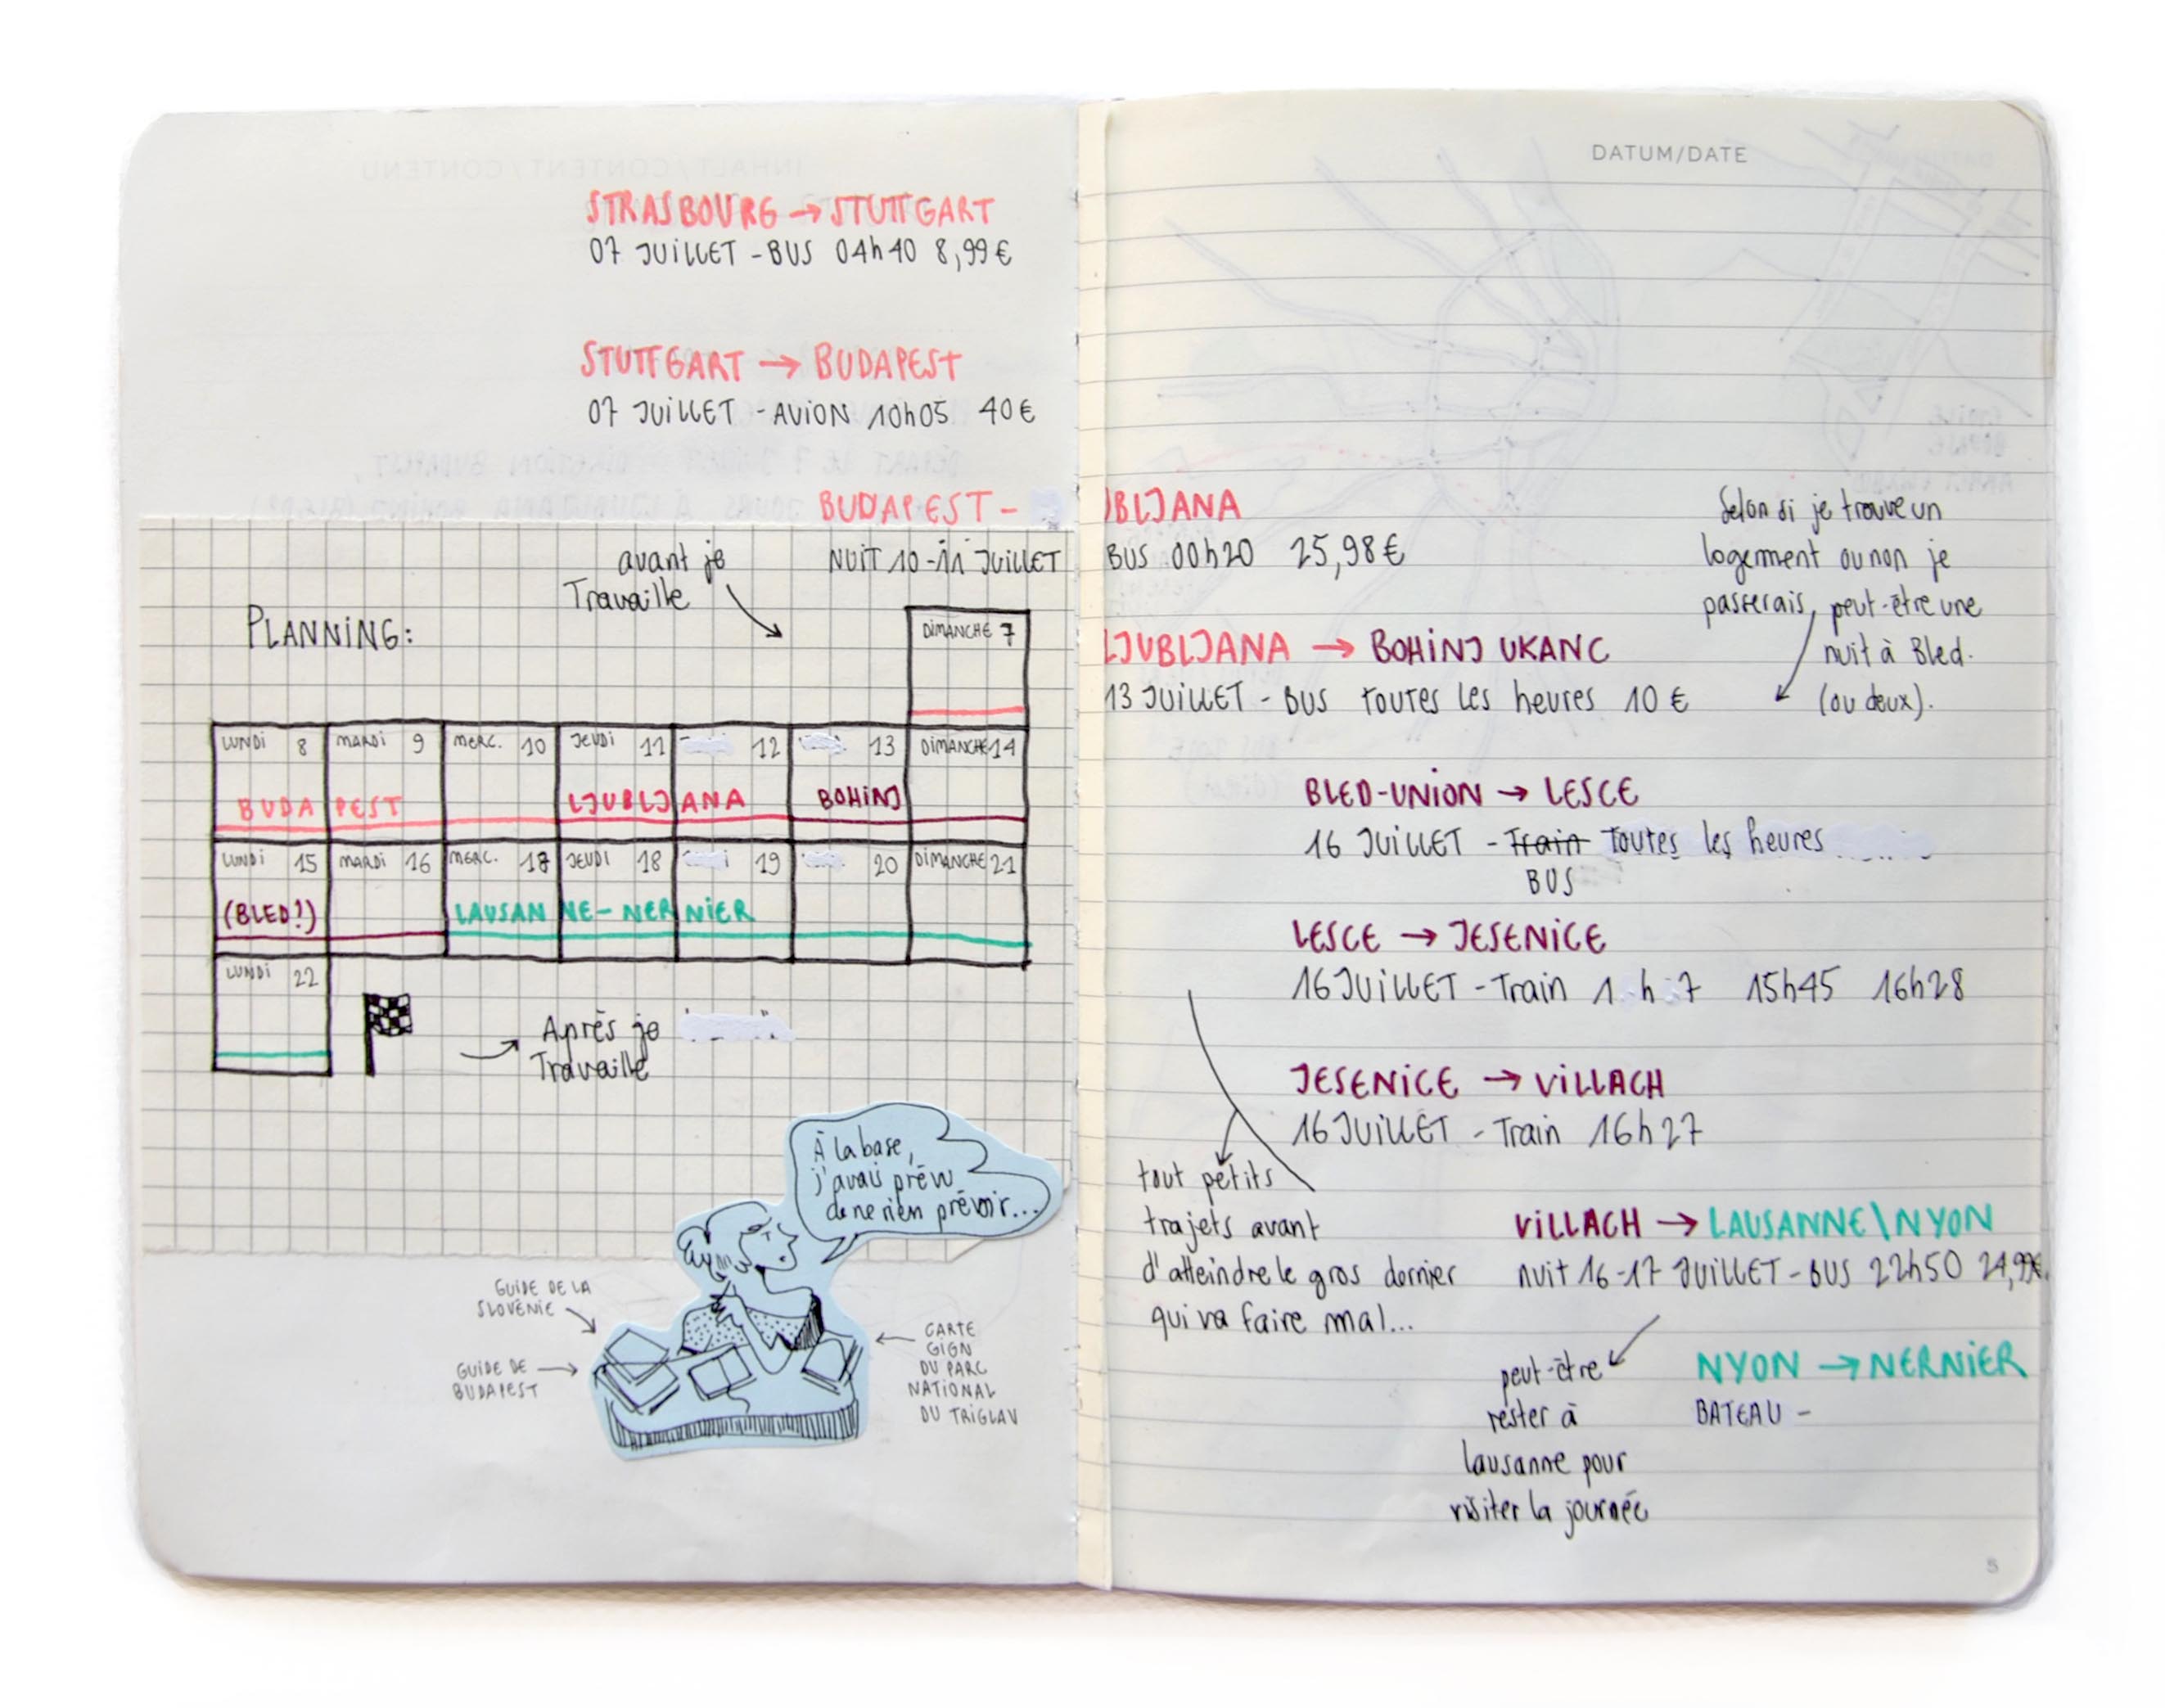 STRASBOURG → STUTTGART
07 JUILLET - BUS 04h40 8,99€
STUTTGART → BUDAPEST
07 JUILLET - AVION 10h05 40€
BUDAPEST -
NUIT 10-11 JUILLET
avant je
Travaille
PLANNING:
DIMANCHE 7
LUNDI 8 MARDI 9 MERC. 10 JEUDI 11 12 13 DIMANCHE 14
BUDAPEST LJUBLJANA BOHINJ
LUNDI 15 MARDI 16 MERC. 17 JEUDI 18 19 20 DIMANCHE 21
(BLED?) LAUSANNE-NERNIER
LUNDI 22
Après je
Travaille
À la base,
j'avais prévu
de ne rien prévoir...
GUIDE DE LA
SLOVÉNIE
GUIDE DE
BUDAPEST
CARTE
GIGN
DU PARC
NATIONAL
DU TRIGLAV
DATUM/DATE
UBLJANA
BUS 00h20 25,98€
Selon si je trouve un
logement ou non je
passerais, peut-être une
nuit à Bled.
(ou deux).
LJUBLJANA → BOHINJ UKANC
13 JUILLET - BUS toutes les heures 10 €
BLED-UNION → LESCE
16 JUILLET - Train Toutes les heures
BUS
LESCE → JESENICE
16 JUILLET - Train 15h45 16h28
JESENICE → VILLACH
16 JUILLET - Train 16h27
tout petits
trajets avant
d'atteindre le gros dernier
qui va faire mal...
VILLACH → LAUSANNE\NYON
nuit 16-17 JUILLET - BUS 22h50 24,99€
peut-être
rester à
lausanne pour
visiter la journée
NYON → NERNIER
BATEAU -
5